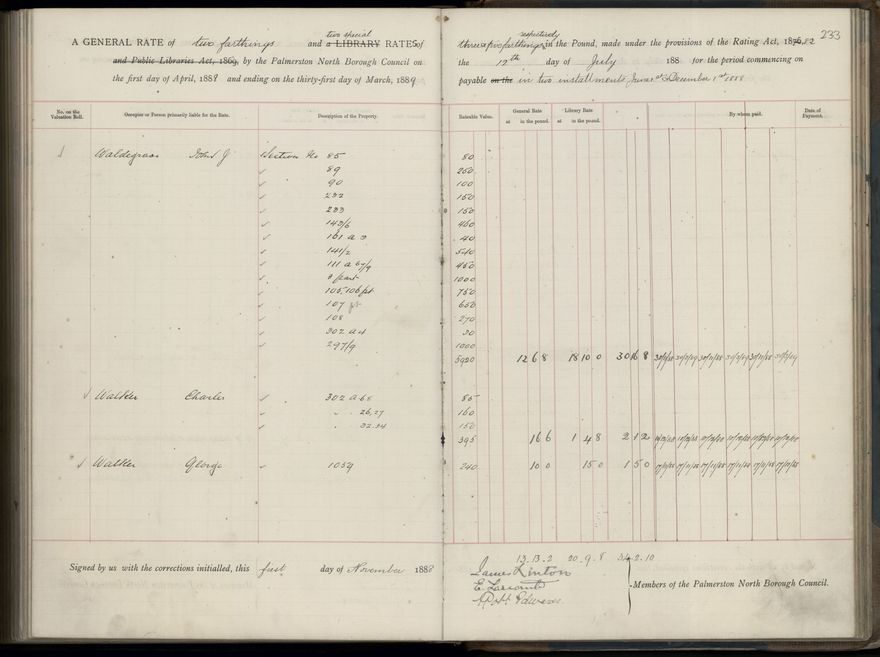 two special
A GENERAL RATE of two farthings and a LIBRARY RATES of
and Public Libraries Act, 1869, by the Palmerston North Borough Council on
the first day of April, 1888 and ending on the thirty-first day of March, 1889
No. on the Valuation Roll.
Occupier or Person primarily liable for the Rate.
Description of the Property.
Waldegrave John J Section No 85
89
90
232
233
143/6
161 a 3
141/2
111 a 67/9
8 part
105, 106 pt
107 pt
108
302 a 4
297/9
Walker Charles 302 a 68
" 26,27
" 32.34
Walker George 1059
Signed by us with the corrections initialled, this first day of November 1888
233
respectively
three & two farthings in the Pound, made under the provisions of the Rating Act, 1876, 82
the 12th day of July 188 for the period commencing on
payable on the in two installments June 1st & December 1st 1888
Rateable Value.
General Rate
at in the pound.
Library Rate
at in the pound.
By whom paid.
Date of Payment.
80
250
100
150
150
460
40
540
450
1000
750
650
270
30
1000
5920 12 6 8 18 10 0 30 16 8
85
160
150
395 16 6 1 4 8 2 1 2
240 10 0 15 0 1 5 0
13.13.2 20.9.8 34.2.10
James Linton
E. Larcomb
Members of the Palmerston North Borough Council.